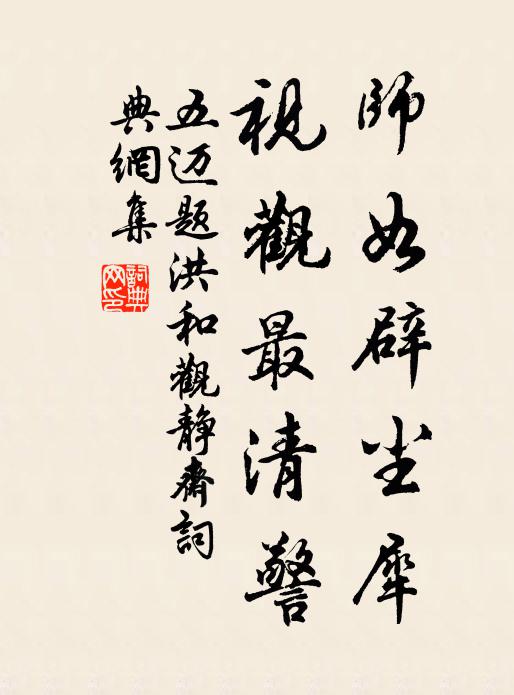 師如辟尘犀
視觀最清警
五迈题洪和觀静齋詞
典網集
詞典网印